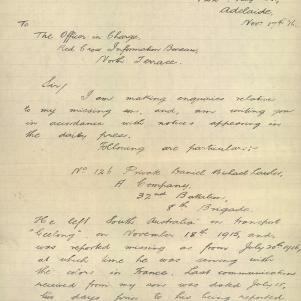 Adelaide,
Nov 17th/16
To
The Officer in Charge,
Red Cross Information Bureau,
North Terrace.
Sir/
I am making enquiries relative
to my missing son, and, am writing you
in accordance with notices appearing in
the daily press.
Following are particulars:-
No 126 Private Daniel Michael
A Company,
32nd Battalion,
8th Brigade.
He left South Australia in transport
"Geelong" on November 18th 1915, and
was reported missing as from July 20th 1916,
at which time he was serving with
the colors in France. Last communication
received from my son was dated July 15,
days prior to his being reported